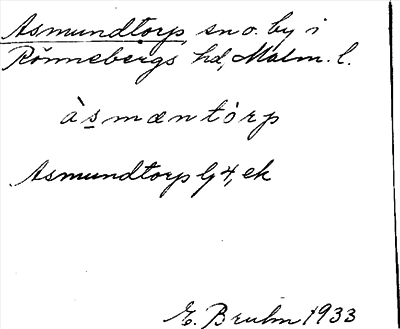 Asmundtorp sn o. by i
Rönnebergs hd, Malm. l.
àsmæntórp
Asmundtorp G 4, ek
E. Bruhn 1933